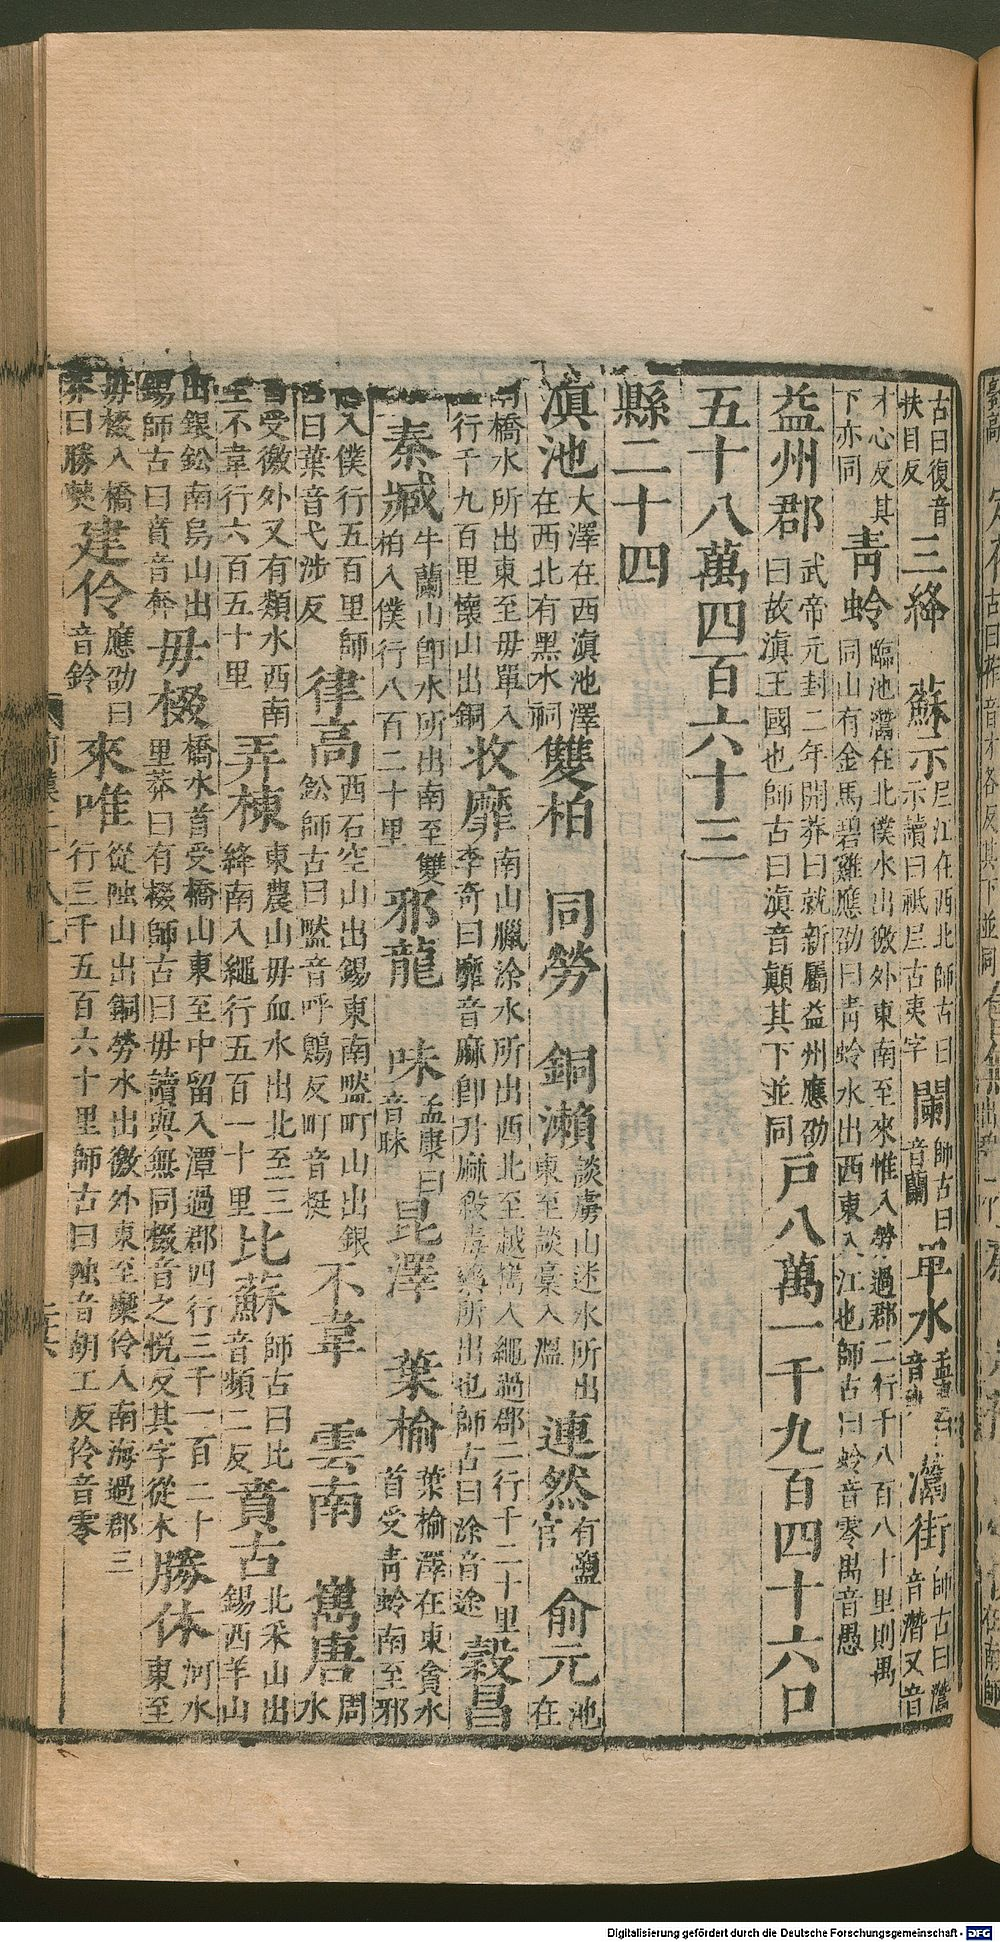 古曰復音扶目反 三絳 蘇示 𡰥江在西北師古曰示讀曰祇𡰥古夷字 闌 師古曰音蘭 卑水 孟康曰音班 灊街 師古曰灊音潛又音
才心反其下亦同 青蛉 臨池灊在北僕水出徼外東南至來惟入勞過郡二行千八百八十里則禺同山有金馬碧雞應劭曰青蛉水出西東入江也師古曰蛉音零禺音愚
益州郡 武帝元封二年開莽曰就新屬益州應劭曰故滇王國也師古曰滇音顛其下並同 戶八萬一千九百四十六口
五十八萬四百六十三
縣二十四
滇池 大澤在西滇池澤在西北有黑水祠 雙柏 同勞 銅瀨 談虜山迷水所出東至談稾入溫 連然 有鹽官 俞元 池在
南橋水所出東至毋單入溫行千九百里懷山出銅 收靡 南山臘涂水所出西北至越嶲入繩過郡二行千二十里李奇曰靡音麻卽升麻殺毒藥所出也師古曰涂音途 穀昌
秦臧 牛蘭山卽水所出南至雙柏入僕行八百二十里 邪龍 味 孟康曰音昧 昆澤 葉榆 葉榆澤在東貪水首受青蛉南至邪
龍入僕行五百里師古曰葉音弋涉反 律高 西石空山出錫東南盢町山出銀鈆師古曰盢音呼鶪反町音挺 不韋 雲南 嶲唐 周水
首受徼外又有類水西南至不韋行六百五十里 弄棟 東農山毋血水出北至三絳南入繩行五百一十里 比蘇 師古曰比音頻二反 賁古 北采山出錫西羊山
出銀鈆南烏山出錫師古曰賁音奔 毋棳 橋水首受橋山東至中留入潭過郡四行三千一百二十里莽曰有棳師古曰毋讀與無同棳音之悅反其字從木 勝休 河水東至
毋棳入橋莽曰勝僰 建伶 應劭曰音鈴 來唯 從𨹟山出銅勞水出徼外東至麋伶入南海過郡三行三千五百六十里師古曰𨹟音胡工反伶音零
Digitalisierung gefördert durch die Deutsche Forschungsgemeinschaft - DFG